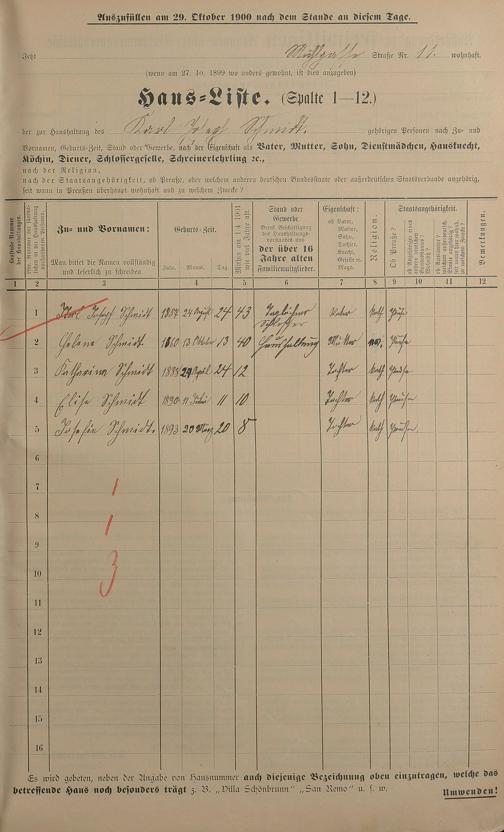 Auszufüllen am 29. Oktober 1900 nach dem Stande an diesem Tage.
Jetzt Mühlgasse Straße Nr. 11. wohnhaft.
(wenn am 27. 10. 1899 wo anders gewohnt, ist dies anzugeben)
Haus-Liste. (Spalte 1—12.)
der zur Haushaltung des Karl Josef Schmidt. gehörigen Personen nach Zu- und
Vornamen, Geburts-Zeit, Stand oder Gewerbe, nach der Eigenschaft als Vater, Mutter, Sohn, Dienstmädchen, Hausknecht,
Köchin, Diener, Schlossergeselle, Schreinerlehrling ꝛc.,
nach der Religion,
nach der Staatsangehörigkeit, ob Preuße, oder welchem anderen deutschen Bundesstaate oder außerdeutschen Staatsverbande angehörig,
seit wann in Preußen überhaupt wohnhaft und zu welchem Zwecke?
Zu- und Vornamen:
Man bittet die Namen vollständig und leserlich zu schreiben
Geburts-Zeit.
Jahr. Monat. Tag.
Stand oder Gewerbe
der über 16 Jahre alten Familienmitglieder.
Eigenschaft:
ob Vater, Mutter, Sohn, Tochter, Knecht, Geselle u. Magd.
Religion.
Staatsangehörigkeit.
Ob Preuße?
Bemerkungen.
1 2 3 4 5 6 7 8 9 10 11 12
1 Karl Joseph Schmidt 1857 24 April 24 43 Taglöhner Schlosser Vater Kath Preuße
2 Helene Schmidt. 1860 13 Oktober 13 40 Haushaltung Mutter Preuße
3 Katharina Schmidt 1888 24 April 24 12 Tochter Kath Preuße
4 Elise Schmidt 1890 11 11 10 Tochter Kath Preuße
5 Josefin Schmidt. 1893 20 März 20 8 Tochter Kath Preuße
6
7 1
8 1
9
10 3
11
12
13
14
15
16
Es wird gebeten, neben der Angabe von Hausnummer auch diejenige Bezeichnung oben einzutragen, welche das
betreffende Haus noch besonders trägt z. B. „Villa Schönbrunn" „San Remo" u. s. w. Umwenden!